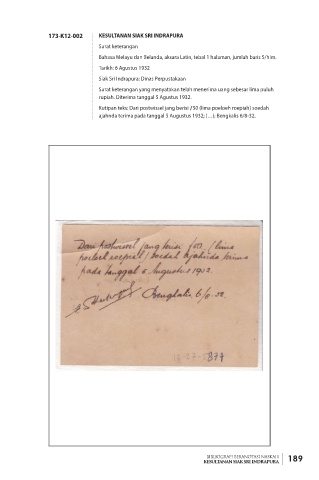 173-K12-002 KESULTANAN SIAK SRI INDRAPURA
Surat keterangan
Bahasa Melayu dan Belanda, aksara Latin, tebal 1 halaman, jumlah baris 5/hlm.
Tarikh: 6 Agustus 1932
Siak Sri Indrapura: Dinas Perpustakaan
Surat keterangan yang menyatakan telah menerima uang sebesar lima puluh
rupiah. Diterima tanggal 5 Agustus 1932.
Kutipan teks: Dari postwissel jang berisi ƒ50 (lima poeloeh roepiah) soedah
ajahnda terima pada tanggal 5 Augustus 1932; (...); Bengkalis 6/8-32.
Dari postwissel jang berisi ƒ50. (lima
poeloeh roepiah) soedah ajahnda terima
pada tanggal 5 Augustus 1932.
Bengkalis 6/8-32.
877
BIBLIOGRAFI BERANOTASI NASKAH
KESULTANAN SIAK SRI INDRAPURA 189